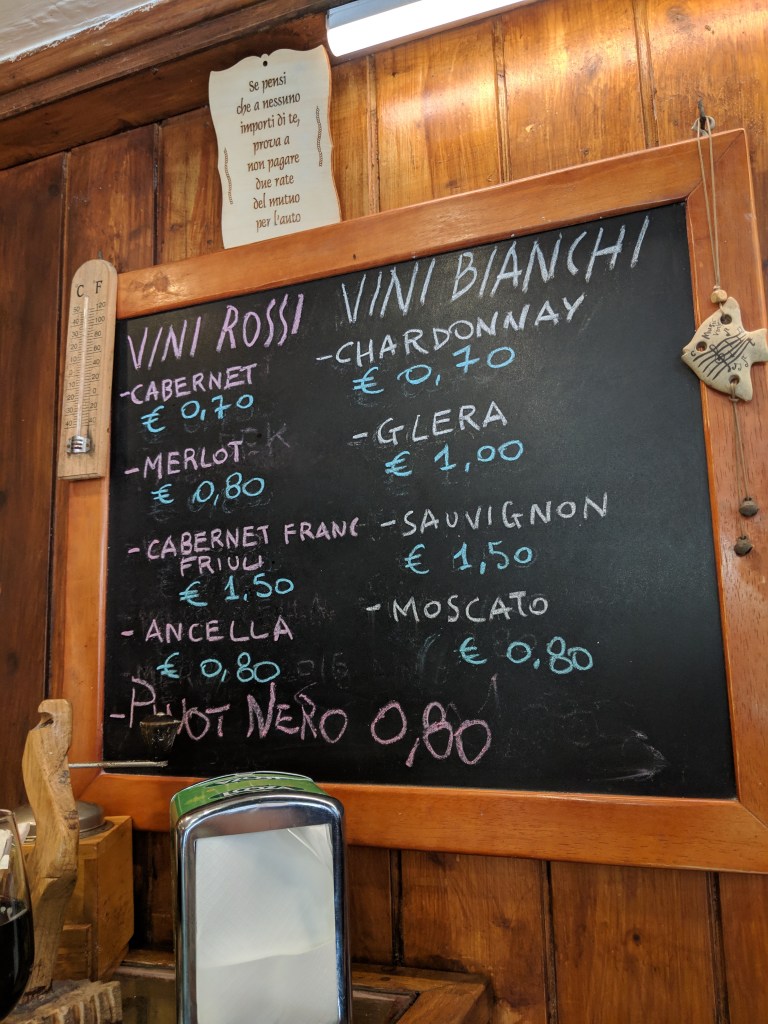 Se pensi
che a nessuno
importi di te,
prova a
non pagare
due rate
del mutuo
per l'auto
C F
VINI ROSSI
-CABERNET
€ 0,70
-MERLOT
€ 0,80
-CABERNET FRANC
FRIULI
€ 1,50
-ANCELLA
€ 0,80
-PINOT NERO 0,80
VINI BIANCHI
-CHARDONNAY
€ 0,70
-GLERA
€ 1,00
-SAUVIGNON
€ 1,50
-MOSCATO
€ 0,80